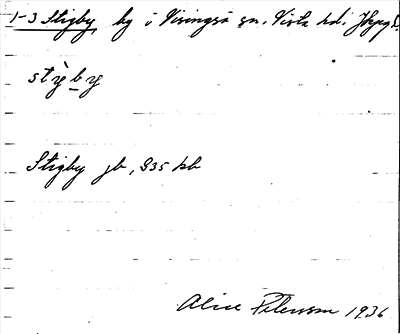 1-3 Stigby by i Visingsö sn. Vista hd. Jkpg l.
stỳby
Stigby jb, 835 kb
Alice Petersson 1936